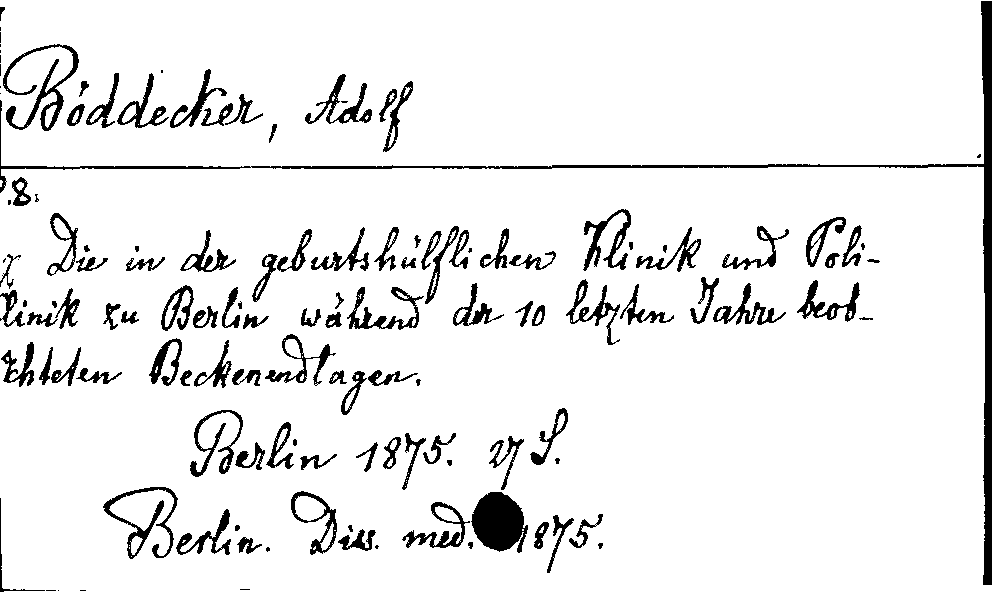 Böddecker, Adolf
P.8.
Die in der geburtshülflichen Klinik und Poli-
klinik zu Berlin während der 10 letzten Jahre beob-
achteten Beckenendlagen.
Berlin 1875. 27 S.
Berlin. Diss. med. 1875.